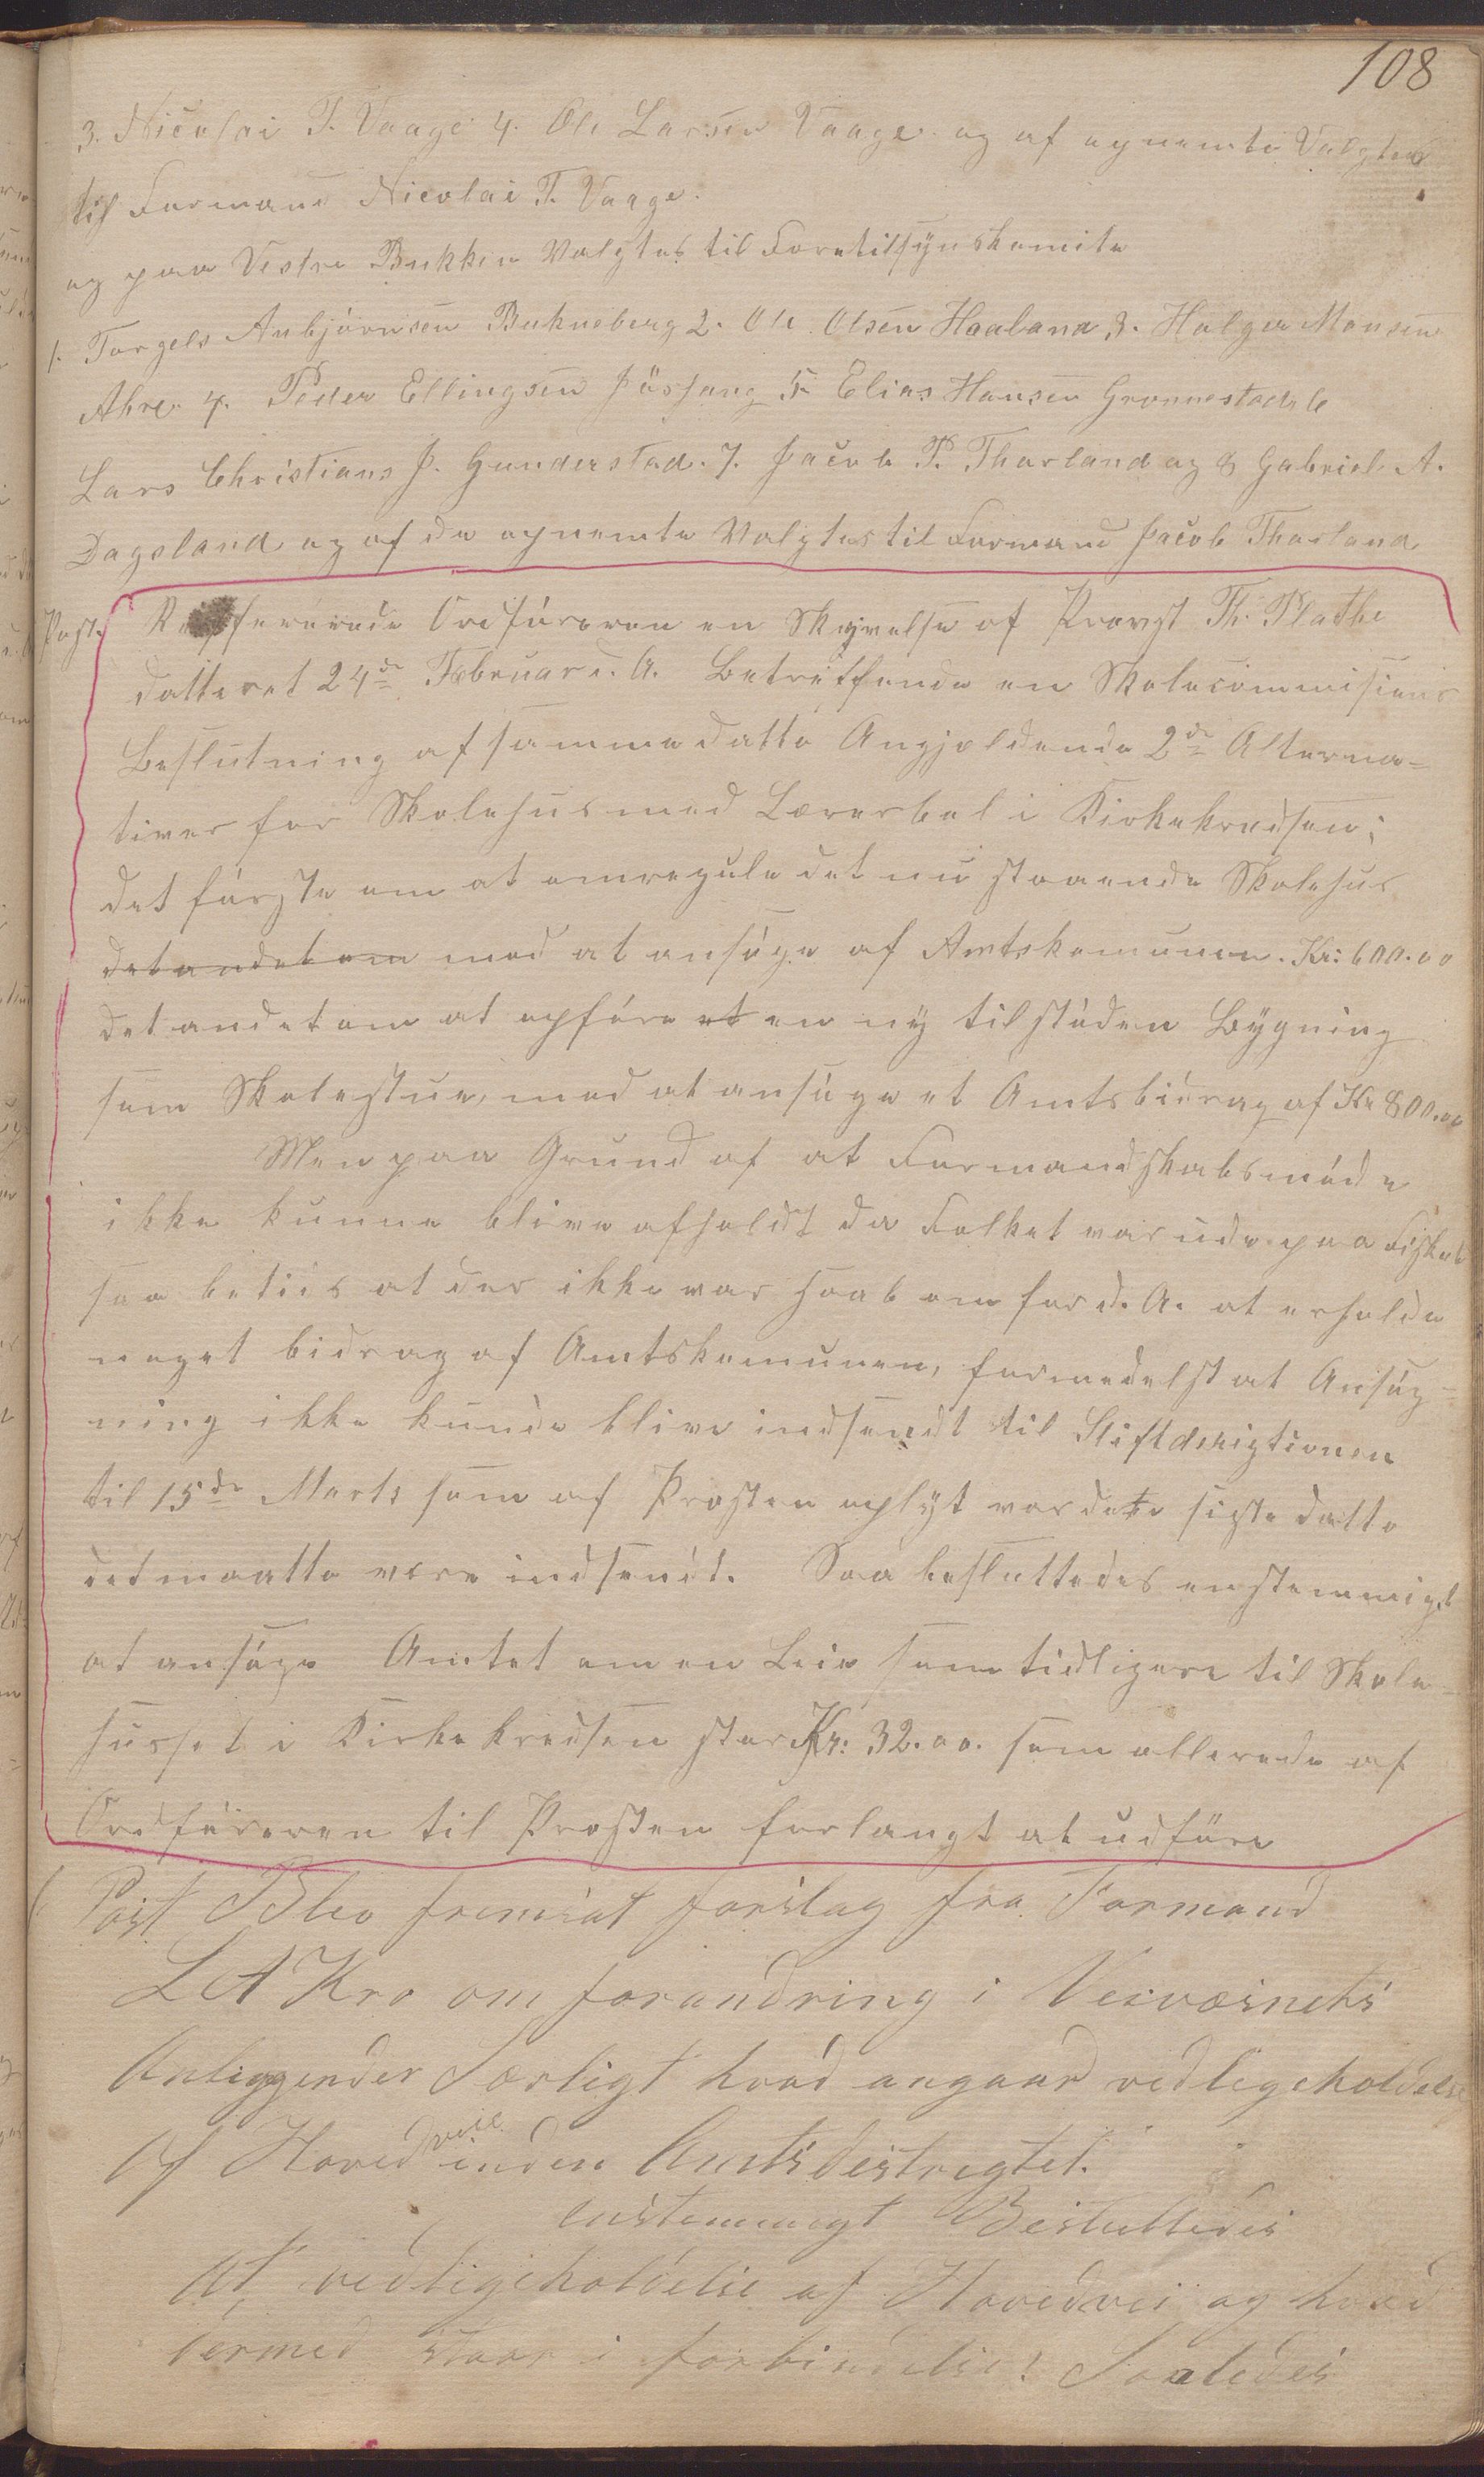 108
3. Nicolai T. Vaage 4. Ole Larsen Vaage og af opnemte Valgtes
til Formand Nicolai T. Vaage.
og paa Vestre Bukken Valgtes til Foretilsÿnskomite
1. Torgels Anbjörnsen Bukneberg 2. Ole Olsen Haaland 3. Holger Monsen
Ahre 4. Peder Ellingsen 5 Elias Hansen Gronnestad 6
Lars Christians J. Gunderstad. 7. Jacob P. Tharland og 8 Gabriel A.
Dagsland og af de opnemte Valgtes til Formand Jacob Tharland
Post. Refererede Ordföreren en Skrivelse af Provst Th. Plathe
datteret 24de Februar d. A. Betreffende en Skolecommisions
Beslutning af samme datto Angjeldende 2de Alterna-
tiver for Skolehus med Lærerbol i Kirkekredsen;
det förste om at omregule det nu staaende Skolehus
det andet om med at ansöge af Amtskomunen. Kr: 600.00
det andet om at opföre et en nÿ tilstöden Bÿgning
som Skolestue, med at ansöge et Amtsbidrag af Kr 800.00
Men paa Grund af at Formandskabsmöde
ikke kunne blive afholdt da Folket var ude paa Fiskeri
saa betids at der ikke var Haab om for d. A. at erholde
noget bidrag af Amtskomunen, formedelst at Ansög-
ning ikke kunde blive indsendt til Stiftderigtionen
til 15de Marts som af Prosten oplÿt var dete siste datto
det maatte være indsendt. Saa besluttedes enstemmigt
at ansöge Amtet om en Leie som tidligere til Skole-
husset i Kirkekredsen stor Kr: 32.00. som allerede af
Ordföreren til Prosten forlangt at udföre
Post Blev fremsat forslag fra Formand
L A Kro om forandring i Veivæsnets
Anliggender Særligt hvad angaar vedligeholdelse
af Hoved veie inden Amtsdistrigtet.
enstemmigt Besluttedes
At, vedligeholdelse af Hovedvei og hvad
dermed staar i forbindelse! Saaledes